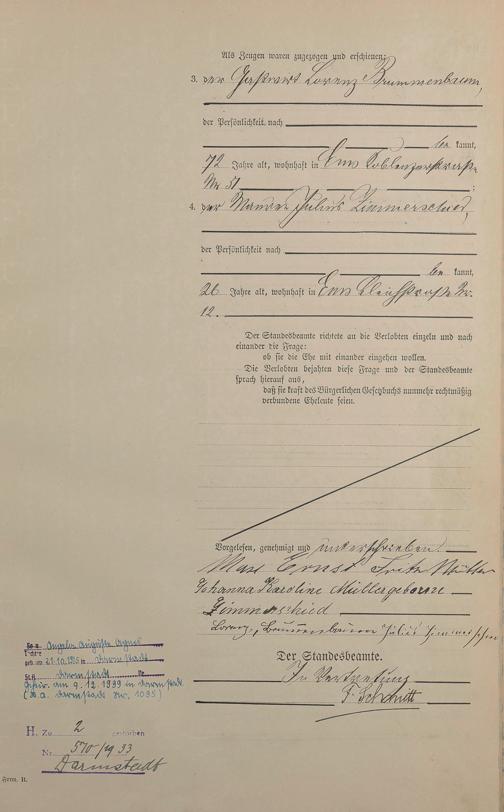 Als Zeugen waren zugezogen und erschienen:
3. der Gastwirt Lorenz Brummenbaum,
der Persönlichkeit nach
be kannt,
72 Jahre alt, wohnhaft in Ems Koblenzerstraße
Nr. 51 ;
4. der Maurer Julius Zimmerschied,
der Persönlichkeit nach
be kannt,
26 Jahre alt, wohnhaft in Ems Bleichstraße Nr.
12.
Der Standesbeamte richtete an die Verlobten einzeln und nach
einander die Frage:
ob sie die Ehe mit einander eingehen wollen.
Die Verlobten bejahten diese Frage und der Standesbeamte
sprach hierauf aus,
daß sie kraft des Bürgerlichen Gesetzbuchs nunmehr rechtmäßig
verbundene Eheleute seien.
Vorgelesen, genehmigt und unterschrieben:
Ernst Fritz Müller
Johanna Karoline Müller geborne
Zimmerschied
Lorenz Brummenbaum Julius Zimmerschied
Der Standesbeamte.
In Vertretung
Schmitt
Angela Auguste Agnes
Tochter
geb. am 21.10. in Darmstadt
Darmstadt
am 9.12.1939 in Darmstadt
(St.A. Darmstadt Nr. 1095)
H. Zu 2 gestorben
Nr. 570/1933
Darmstadt
Form. B.